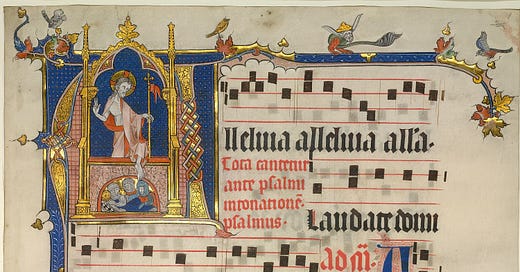 Alleluia alleluia alla·
Tota cantetur
ante psalmi
intonationē·
psalmus·
Laudate domi
ad